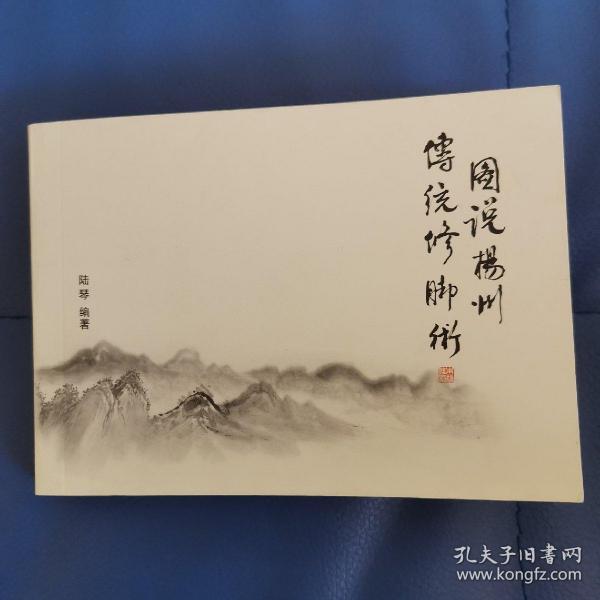 圖说揚州
傳統修脚術
陆琴 编著
孔夫子旧书网
www.kongfz.com